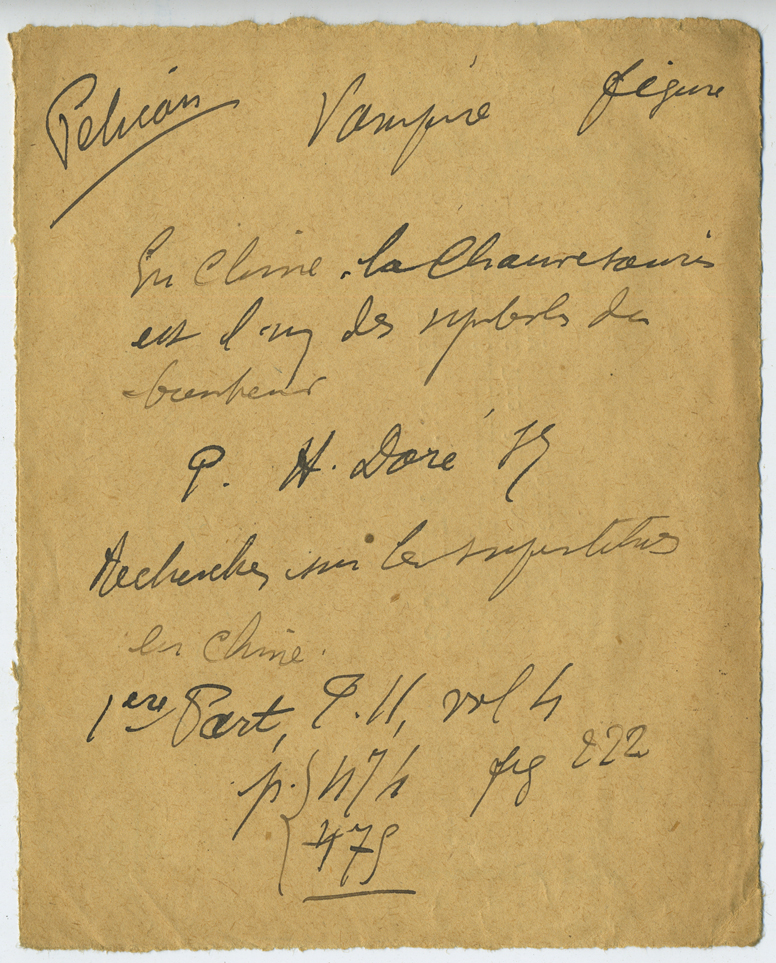 Pelican Vampire figure
En Chine, la Chauvesouris
est l'un des symbols du
bonheur
P. H. Doré SJ
Recherches sur les superstitions
en Chine.
1ere Part, P. II, vol 4
p. 474 fig 222
475